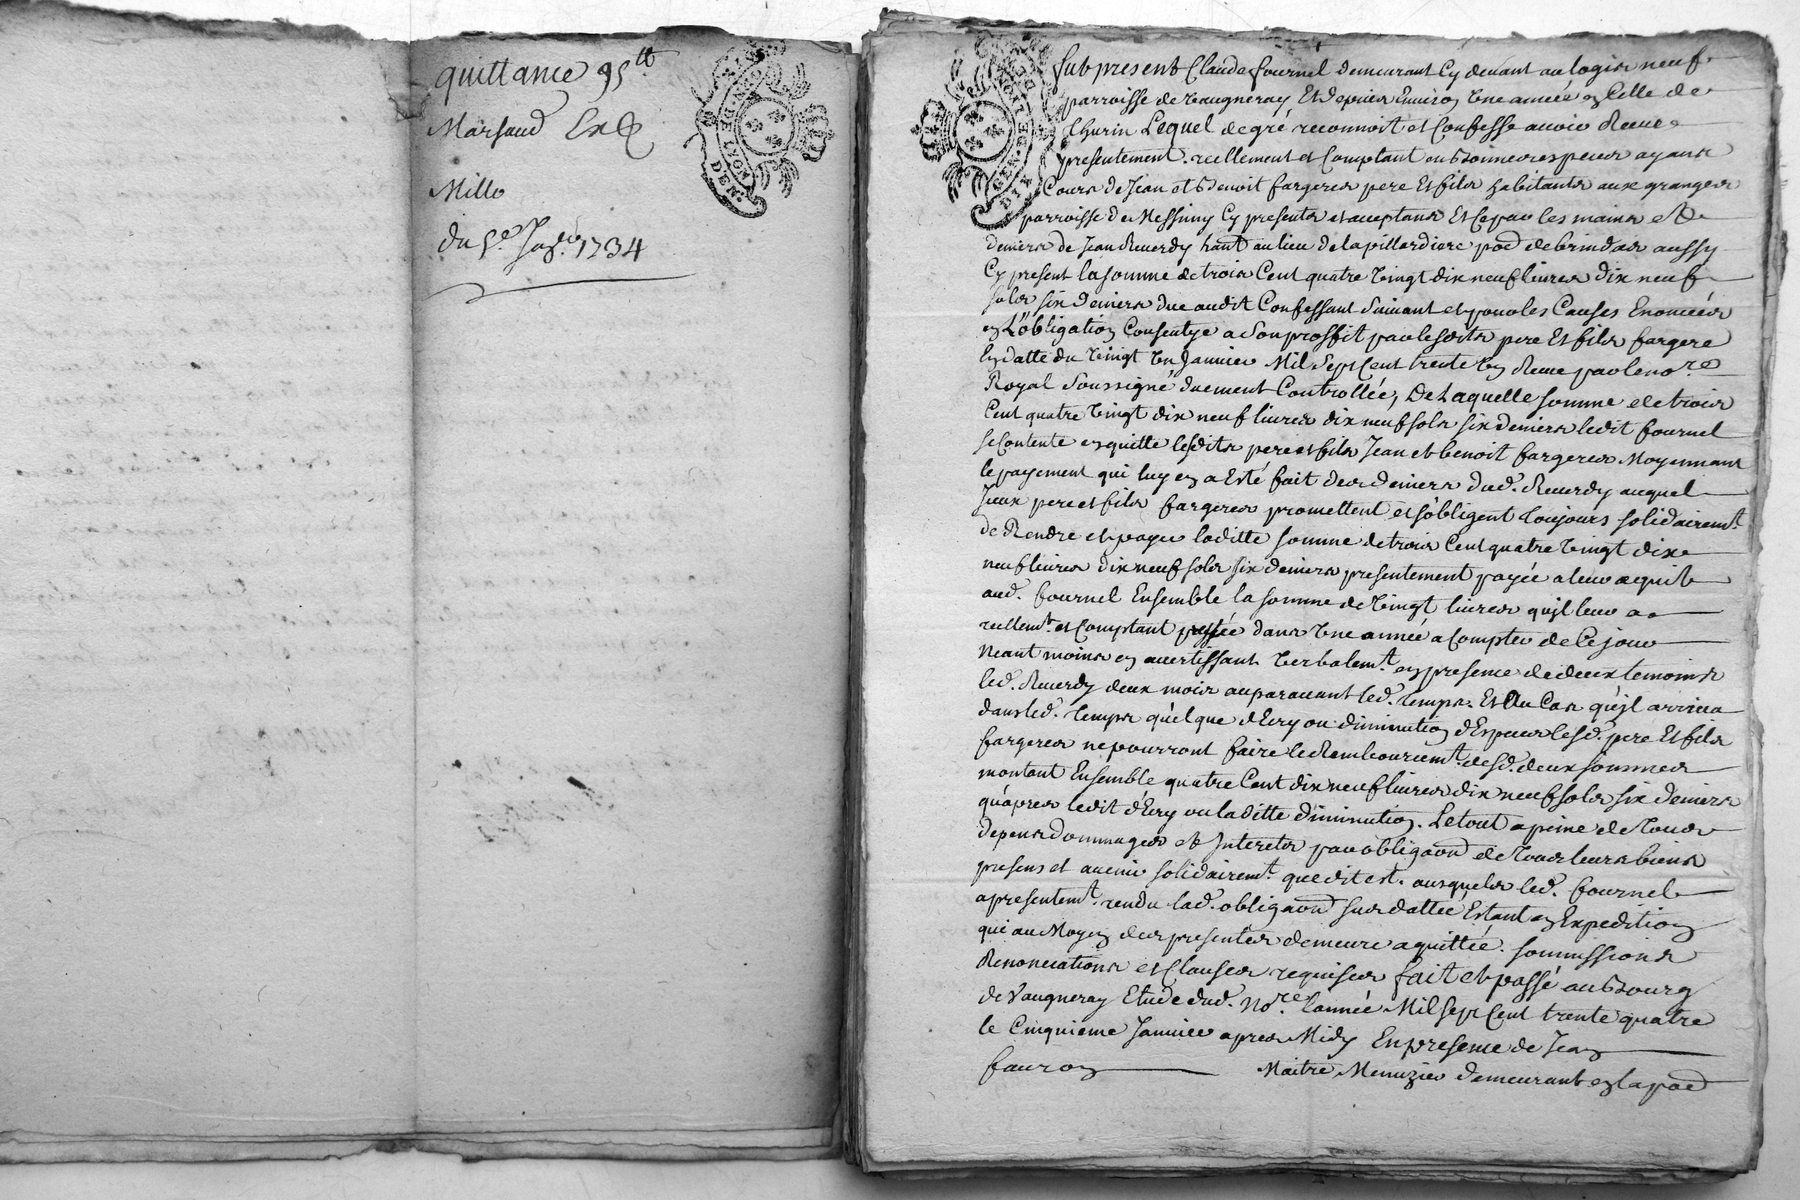 quittance 95 tt
Marsaud
Millo
du 5e Janr. 1734
GEN. DE LYON
DIX DEN.
fut present Claude fournel demeurant Cy devant au logis neuf
parroisse de Vaugneray Et depuis Environ Une année en Celle de
thurin Lequel de gré reconnoit et Confesse avoir Receu
presentement reellement et Comptant en bonnes especes ayant
Cours de Jean et Benoit fargeres pere Et fils habitants aux granges
parroisse de Messimy Cy presents et acceptans Et Ce par les mains et
deniers de Jean Reverdy hant au lieu de lapillardiere pad de brindas aussy
Cy present la somme de trois Cent quatre Vingt dix neuf livres dix neuf
sols six deniers due audit Confessant Suivant et pour les Causes Enoncées
en L'obligation Consentye a Son proffit par lesdits pere Et fils fargere
En datte du Vingt Un Janvier Mil Sept Cent trente Un Receue par le nore
Royal Soussigné duement Controllée, De Laquelle somme de trois
Cent quatre Vingt dix neuf livres dix neuf sols six deniers ledit fournel
se Contente en quitte lesdits pere et fils Jean et benoit fargeres Moyennant
le payement qui luy en a Esté fait des deniers dud. Reverdy auquel
Iceux pere et fils fargeres promettent et s'obligent toujours solidairemt
de Rendre et payer laditte somme de trois Cent quatre Vingt dix
neuf livres dix neuf sols six deniers presentement payée a leur acquit
aud. fournel Ensemble la somme de Vingt livres qu'jl leur a
reellemt et Comptant prestée dans Une année a Compter de Ce jour
Neant moins en avertissant Verbalemt en presence de deux temoins
led. Reverdy deux mois auparavant led. temps. Et Au Cas qu'jl arriva
dans led. temps quelque d'Ecry ou diminution d'Especes lesd. pere Et fils
fargeres ne pourront faire le Remboursemt desd. deux sommes
montant Ensemble quatre Cent dix neuf livres dix neuf sols six deniers
qu'apres ledit d'Ecry ou laditte diminution. Le tout a peine de tous
depens dommages et Interets par obligaon de tous leurs biens
presens et avenir solidairemt que dit est. ausquels led. fournel
a presentemt rendu lad. obligaon sus dattée Estant en Expedition
qui au Moyen des presentes demeure aquittée. soumissions
Renonciations et Clauses requises fait et passé au Bourg
de Vaugneray Etude dud. Nore. l'année Mil Sept Cent trente quatre
le Cinquieme Janvier apres Midy En presence de Jean
fauron Maitre Menuzier demeurant en la pad